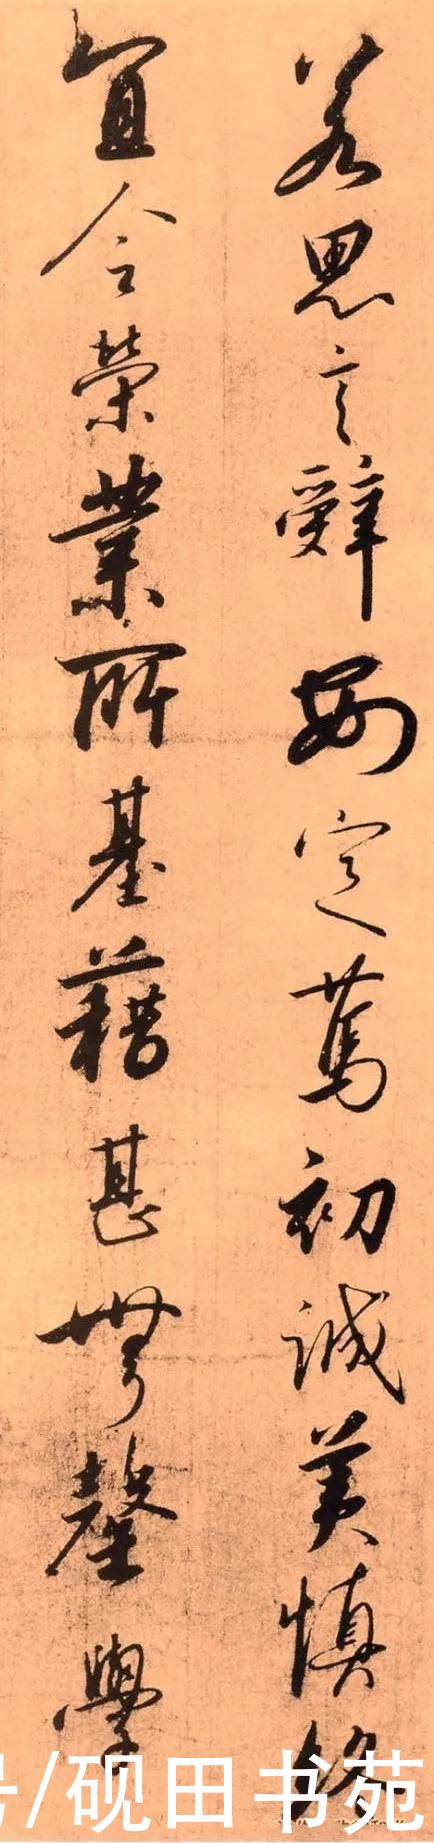 若思言辭安定篤初誠美慎終
宜令榮業所基藉甚無罄學
号/砚田书苑